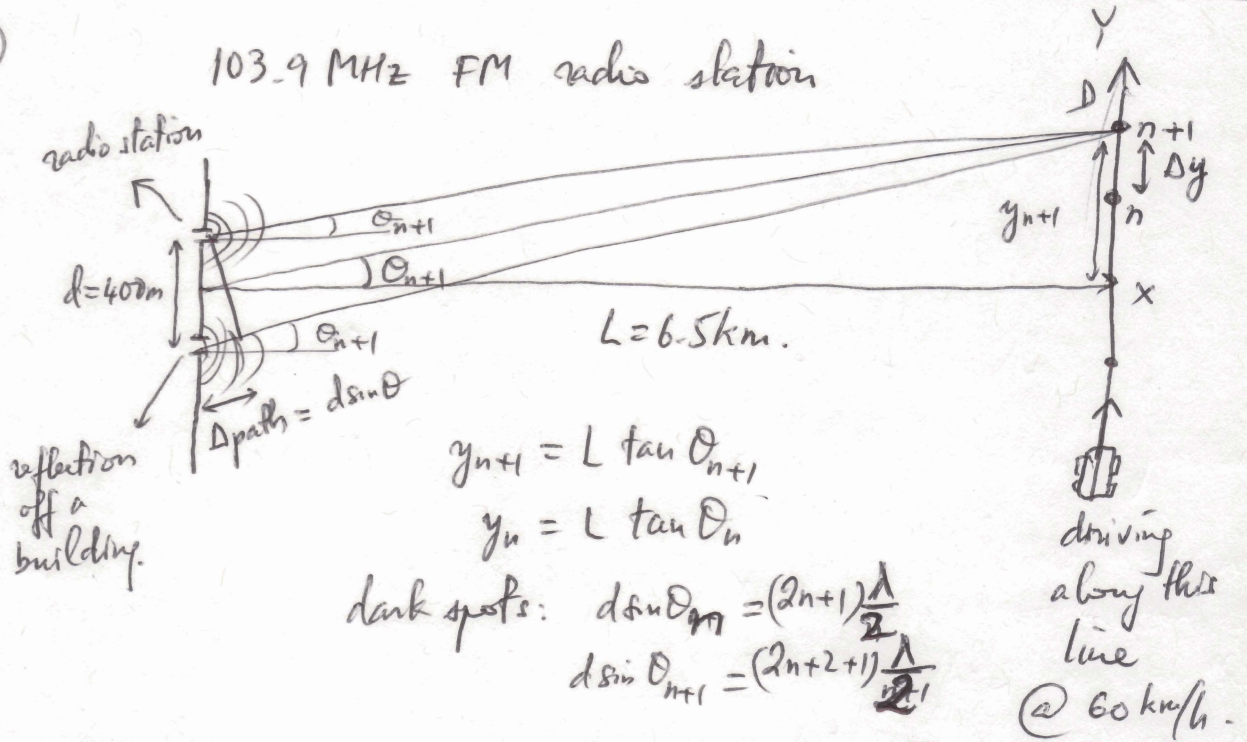 103.9 MHz FM radio station
radio station
d=400m
θn+1
θn+1
θn+1
Δpath = dsinθ
reflection
off a
building.
L=6.5km.
Y
D
n+1
Δy
n
yn+1
X
yn+1 = L tan θn+1
yn = L tan θn
dark spots: dsinθn = (2n+1) λ/2
dsin θn+1 = (2n+2+1) λ/2
driving
along this
line
@ 60 km/h.